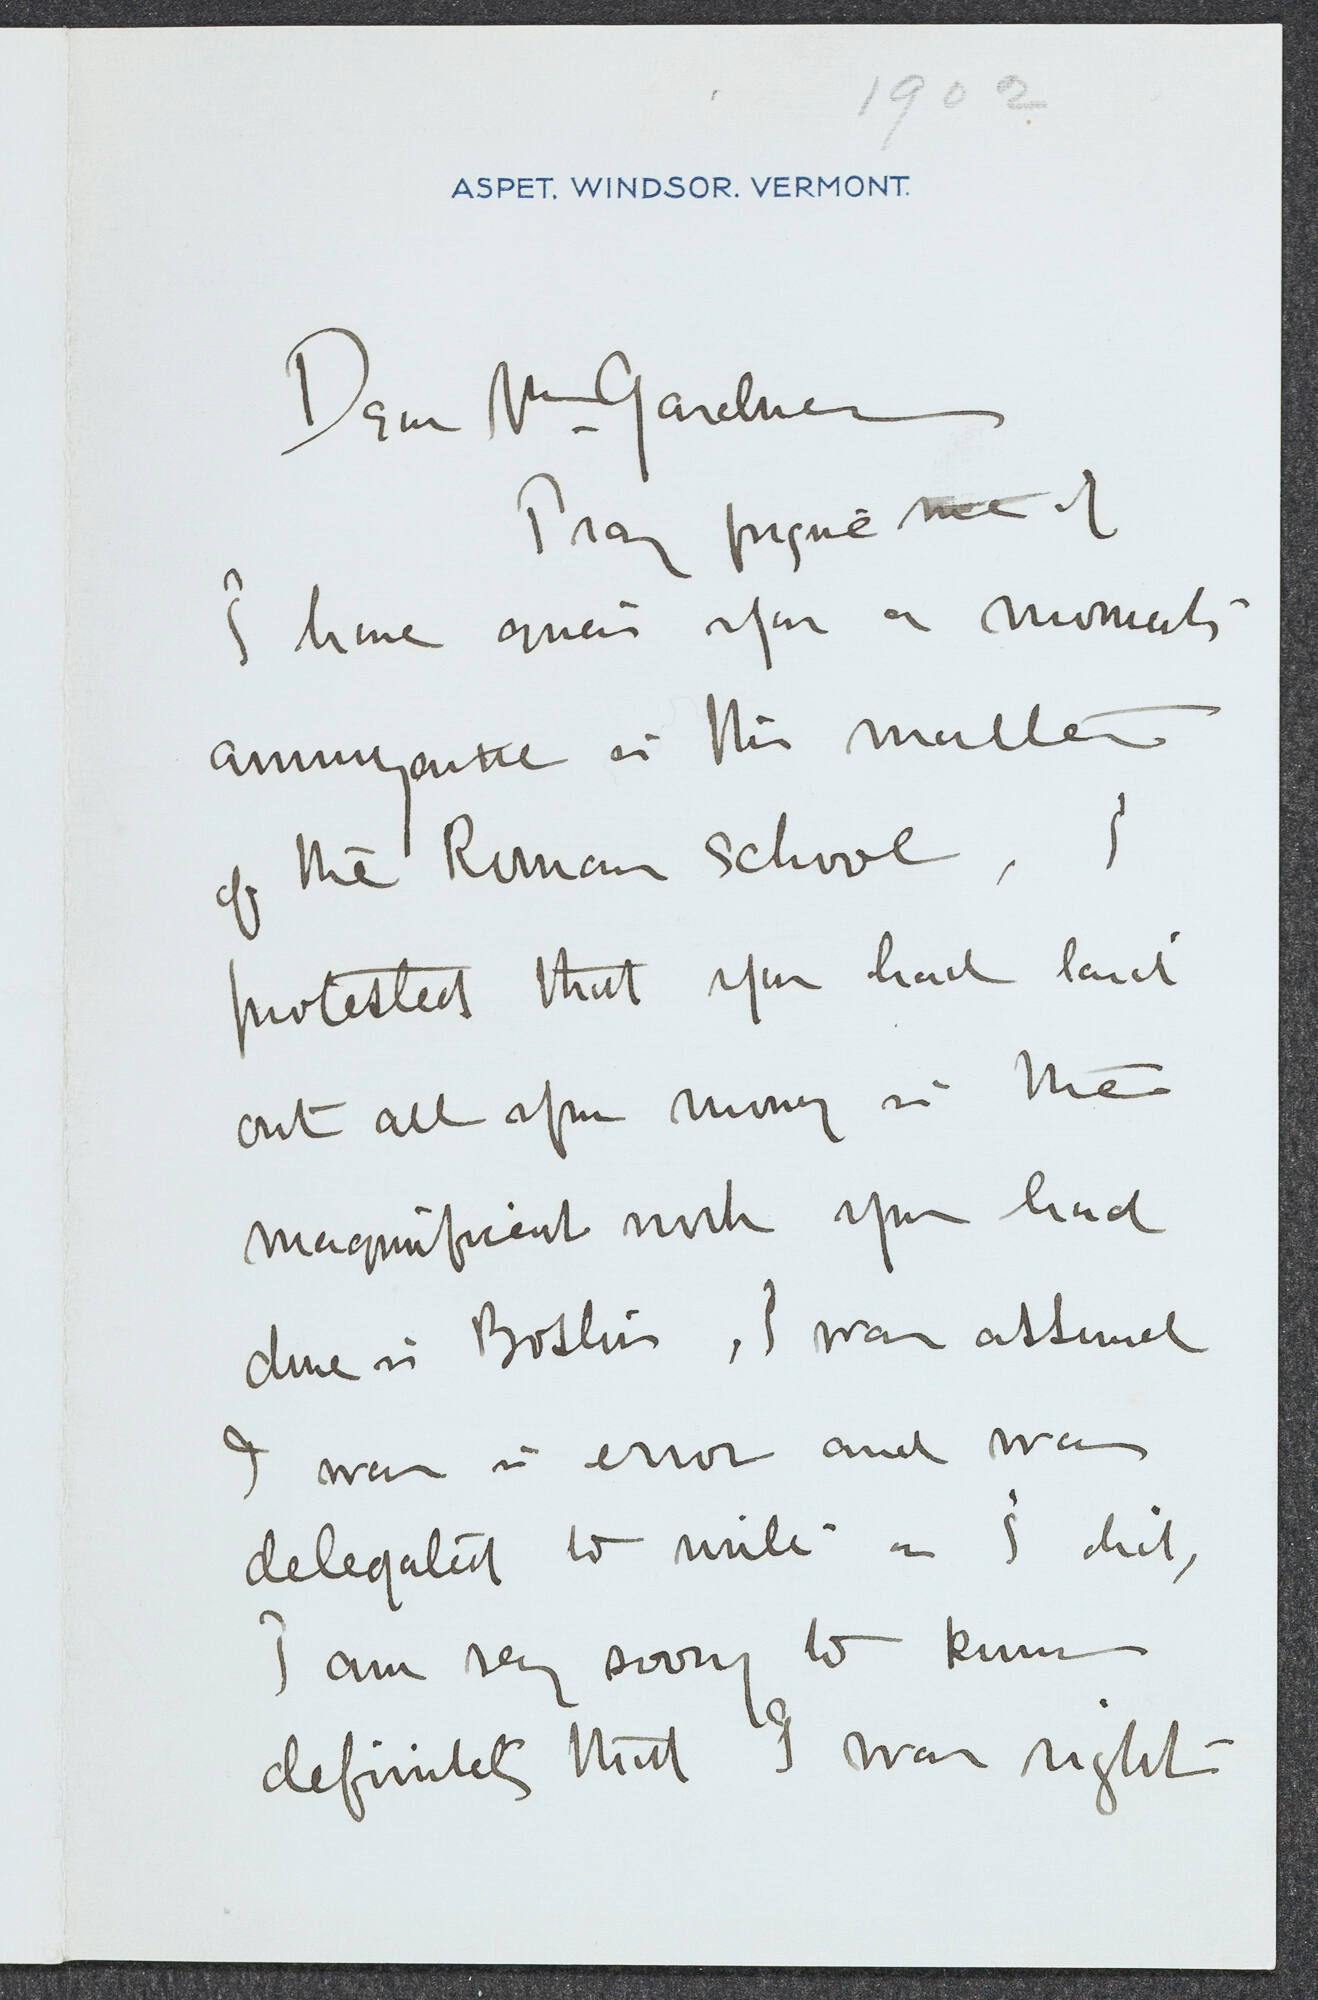 1902
ASPET. WINDSOR. VERMONT.
Dear Mrs Gardner
Pray forgive me if
I have given you a moments
annoyance in this matter
of the Roman School, I
protested that you had laid
out all your money in the
magnificent work you had
done in Boston, I was assured
I was in error and was
delegated to write as I did,
I am very sorry to know
definitely that I was right